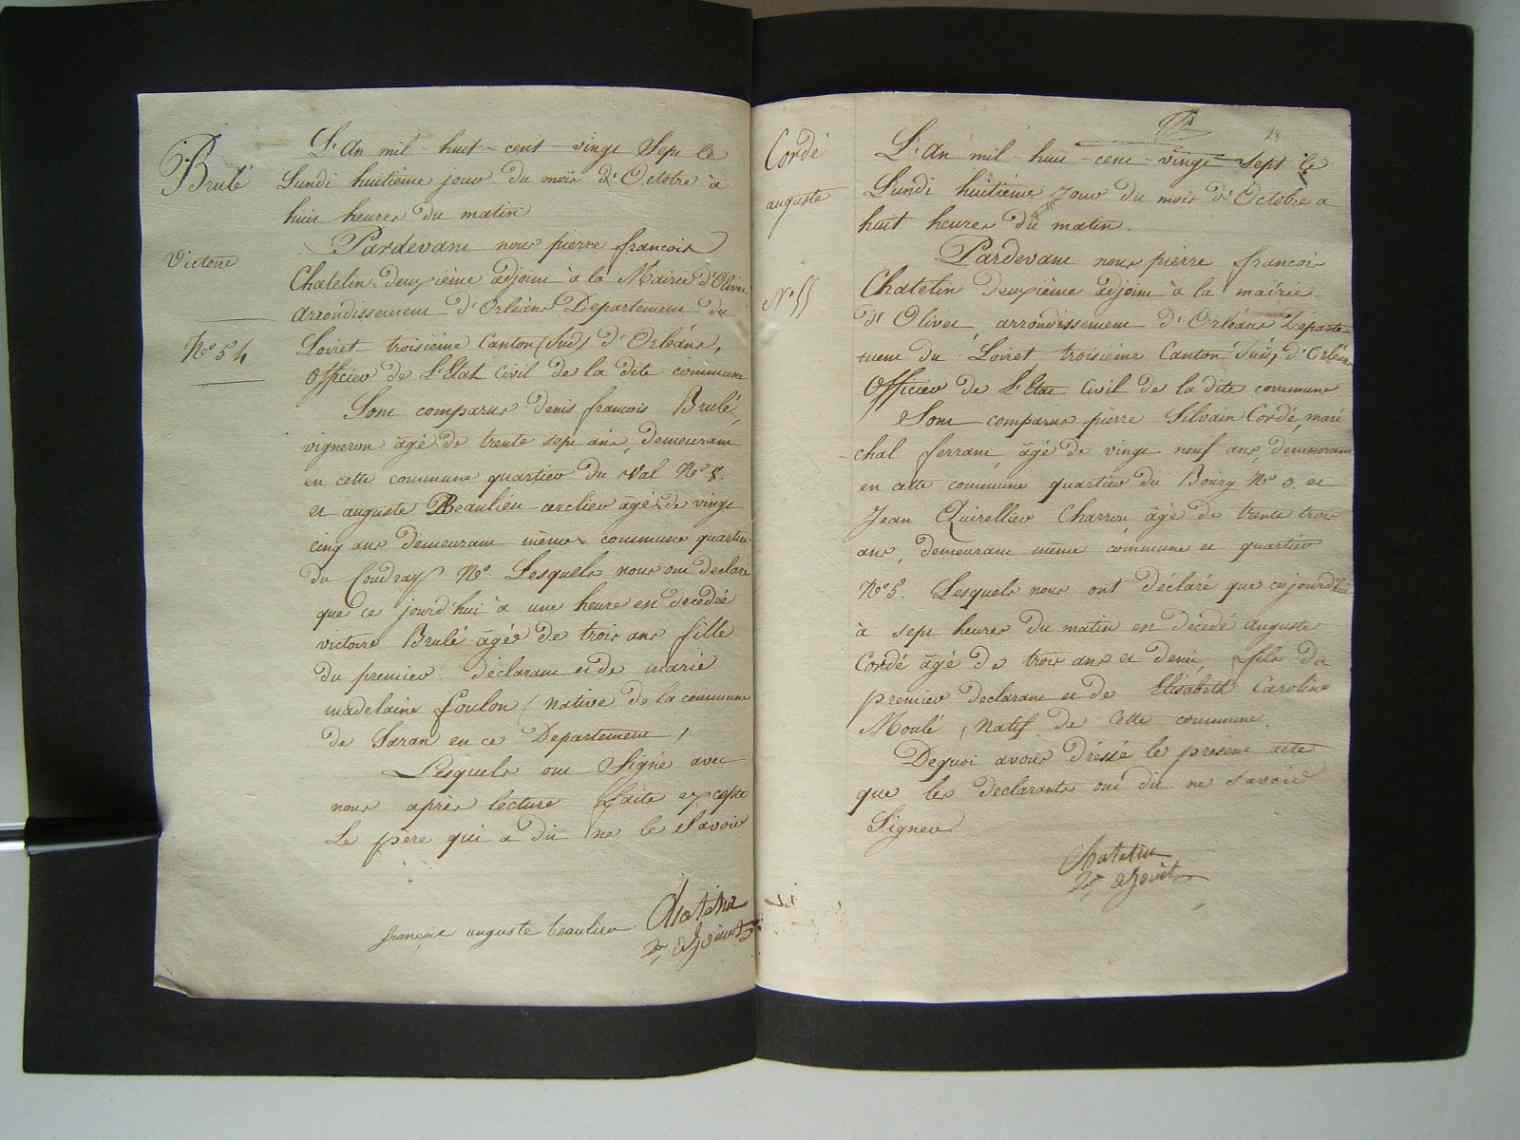 Brulé
Victoire
No 54
L'An mil-huit-cent-vingt Sept le
Lundi huitième jour du mois d'Octobre à
huit heures du matin
Pardevant nous pierre francois
Chatelin deuxième adjoint à la Mairie d'Olivet
arrondissement d'Orléans Departement du
Loiret troisième Canton (Sud) d'Orléans,
officier de L'Etat Civil de la dite commune
Sont comparus denis francois Brulé,
vigneron âgé de trente sept ans, demeurant
en cette commune quartier du Val No 5.
et auguste Beaulieu cerclier âgé de vingt
cinq ans demeurant même commune quartier
du Coudray No. Lesquels nous ont declaré
que ce jourd'hui à une heure est décédée
victoire Brulé âgée de trois ans fille
du premier declarant et de marie
madelaine foulon (native de la commune
de Saran en ce Departement,
Lesquels ont Signé avec
nous après lecture faite excepté
Le père qui a dit ne le Savoir
françois auguste beaulieu Chatelin
2e adjoint
Cordé
auguste
No 55
L'An mil-huit-cent-vingt-sept le
Lundi huitième Jour du mois d'Octobre a
huit heures du matin.
Pardevant nous pierre francois
Chatelin deuxième adjoint à la mairie
d'Olivet, arrondissement d'Orléans Departe-
ment du Loiret troisième Canton (Sud) d'Orléans
Officier de L'Etat Civil de la dite commune
Sont comparus pierre Silvain Cordé, maré
chal ferrant, âgé de vingt neuf ans, demeurant
en cette commune quartier du Bourg No 0. et
Jean Quirellier Charron, âgé de trente trois
ans, demeurant même commune et quartier
No 5. Lesquels nous ont déclaré que cejourd'hui
à sept heures du matin est décédé auguste
Cordé âgé de trois ans et demi, fils du
premier declarant et de Elisabeth Caroline
Moulé, Natif de Cette commune.
Dequoi avons dressé le présent acte
que les declarants ont dit ne savoir
Signer
Chatelin
2e adjoint